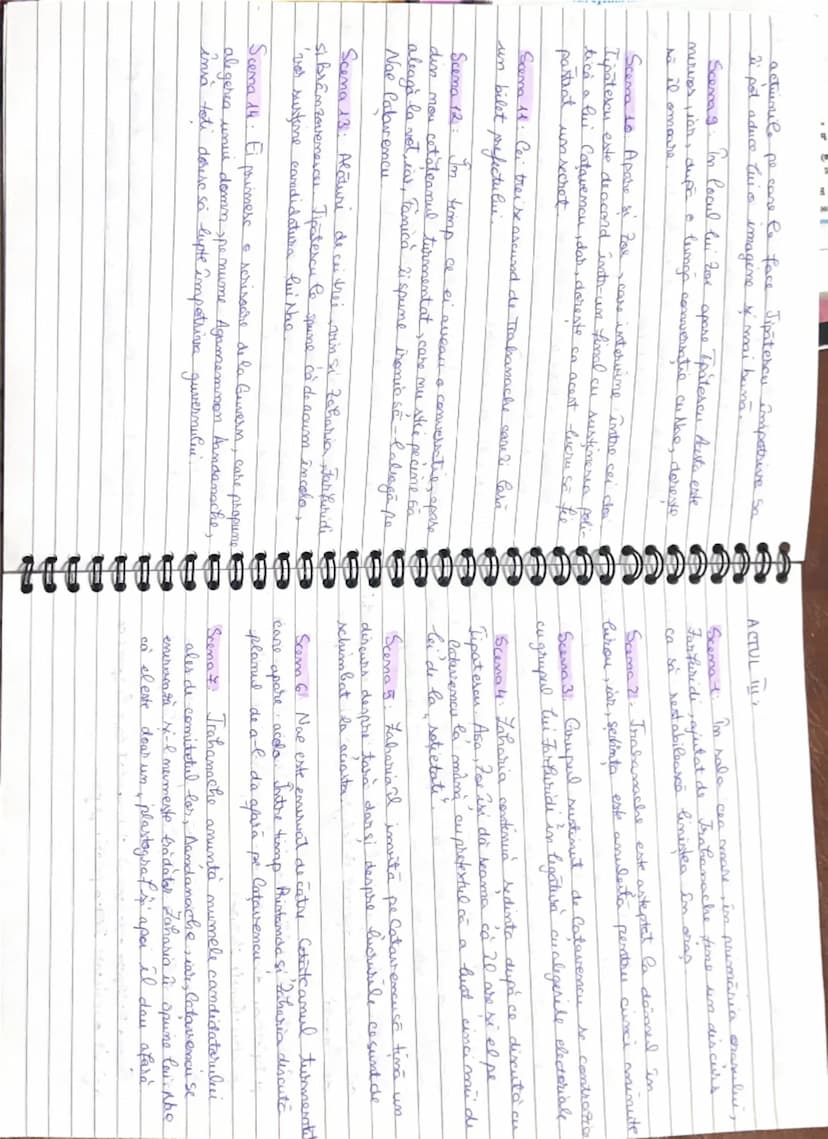 acțiunile pe care le face Tipătescu împotriva sa
îi pot aduce lui o imagine și mai bună.
Scena 9: În locul lui Zoe apare Tipătescu. Acesta este
nervos, iar, după o lungă conversație cu Nae, dorește
să îl omoare.
Scena 10: Apare și Zoe, care intervine între cei doi
Tipătescu este deacord într-un final cu susținerea poli-
tică a lui Cațavencu, dar, dorește ca acest lucru să fie
păstrat un secret
Scena 11: Cei trei se ascund de Trahanache care îi lasă
un bilet prefectului.
Scena 12: În timp ce ei aveau o conversație, apare
din nou cetățeanul turmentat, care nu știe pe cine să
aleagă la vot, iar, Fănică îi spune ironic să-l aleagă pe
Nae Cațavencu
Scena 13: Alături de cei trei, vin și Zaharia, Farfuridi
și Brânzovenescu. Tipătescu le spune că de acum încolo,
vor susține candidatura lui Nae
Scena 14: Ei primesc o scrisoare de la Guvern, care propune
alegerea unui domn, pe nume Agamemnon Dandanache,
însă toți doresc să lupte împotriva guvernului.
ACTUL III:
Scena 1: În sala cea mare, în primăria orașului,
Farfuridi, ajutat de Trahanache ține un discurs
ca să restabilească liniștea în oraș
Scena 2: Trahanache este așteptat la dânsul în
birou, iar, ședința este anulată pentru cinci minute
Scena 3: Grupul susținut de Cațavencu se contrazice
cu grupul lui Farfuridi în legătură cu alegerile electorale
Scena 4: Zaharia continuă ședința după ce discută cu
Tipătescu. Asa, Zoe își dă seama că îl are și el pe
Cațavencu la mână cu pretextul că a luat cinci mii de
lei de la „societate”.
Scena 5: Zaharia îl invită pe Cațavencu să țină un
discurs despre țară dar și despre lucrurile ce sunt de
schimbat la aceasta.
Scena 6: Nae este enervat de către Cetățeanul turmentat
care apare acolo. Între timp Pristanda și Zaharia discută
planul de a-l da afară pe Cațavencu
Scena 7: Trahanache anunță numele candidatorului
ales de comitetul lor, Dandanache, iar, Cațavencu se
enervează și-l numește trădător. Zaharia îi spune lui Nae
că el este doar un „plastograf” și apoi îl dau afară